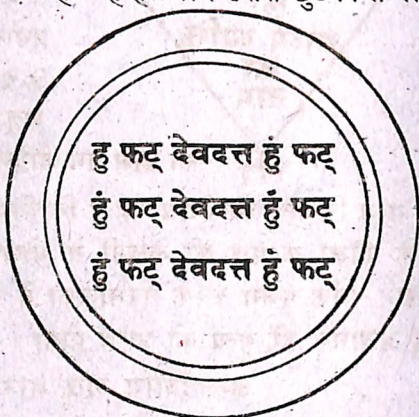 हु फट् देवदत्त हुं फट्
हुं फट् देवदत्त हुं फट्
हुं फट् देवदत्त हुं फट्